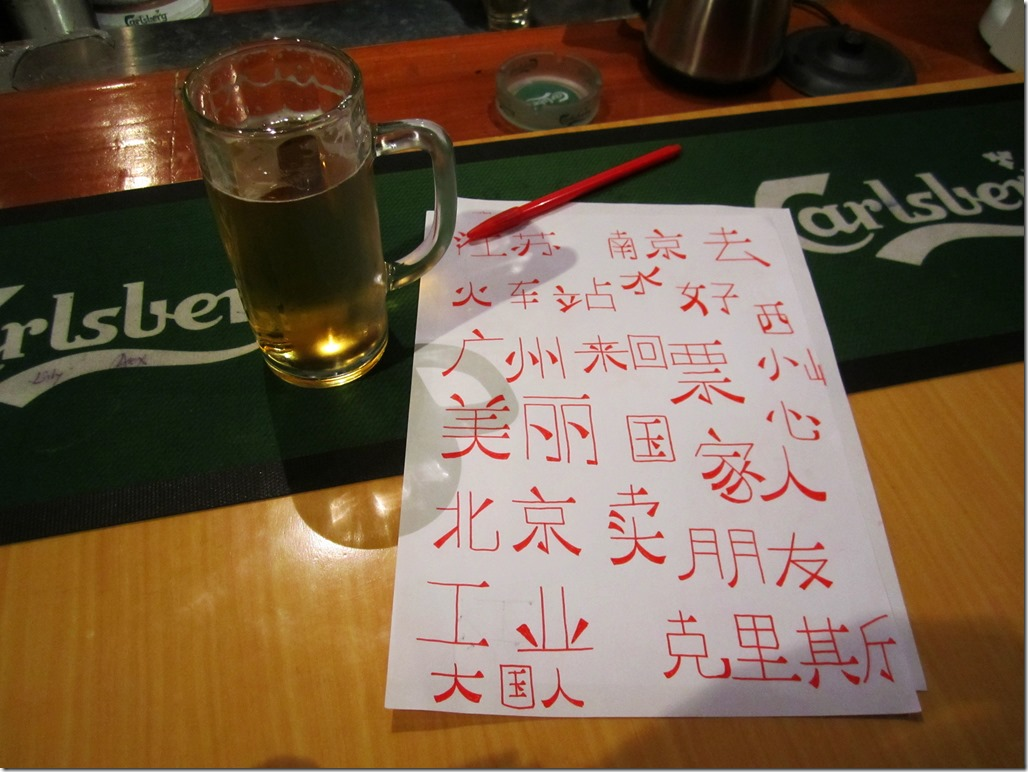 Carlsberg
Carlsberg
arlsbe
江苏 南京 去
火车站 水 好
西
广州 来回 票 小山
美丽 国家 心
人
北京 卖 朋友
工业 克里斯
大国人